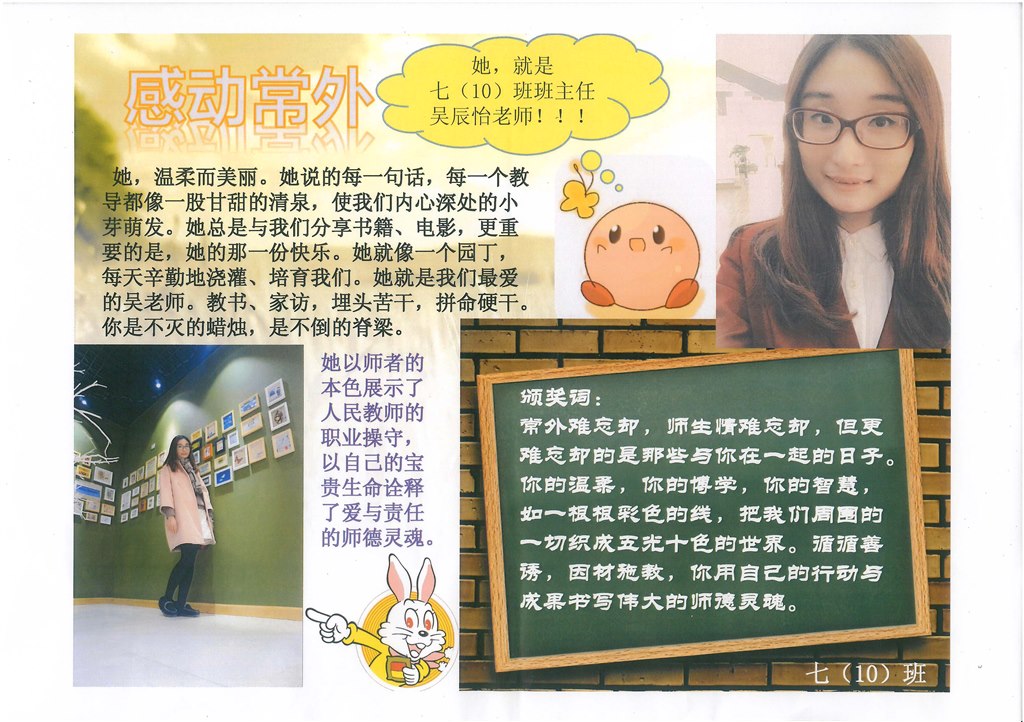 感动常外
她，就是
七（10）班班主任
吴辰怡老师！！！
她，温柔而美丽。她说的每一句话，每一个教
导都像一股甘甜的清泉，使我们内心深处的小
芽萌发。她总是与我们分享书籍、电影，更重
要的是，她的那一份快乐。她就像一个园丁，
每天辛勤地浇灌、培育我们。她就是我们最爱
的吴老师。教书、家访，埋头苦干，拼命硬干。
你是不灭的蜡烛，是不倒的脊梁。
她以师者的
本色展示了
人民教师的
职业操守，
以自己的宝
贵生命诠释
了爱与责任
的师德灵魂。
颁奖词：
常外难忘却，师生情难忘却，但更
难忘却的是那些与你在一起的日子。
你的温柔，你的博学，你的智慧，
如一根根彩色的线，把我们周围的
一切织成五光十色的世界。循循善
诱，因材施教，你用自己的行动与
成果书写伟大的师德灵魂。
七（10）班